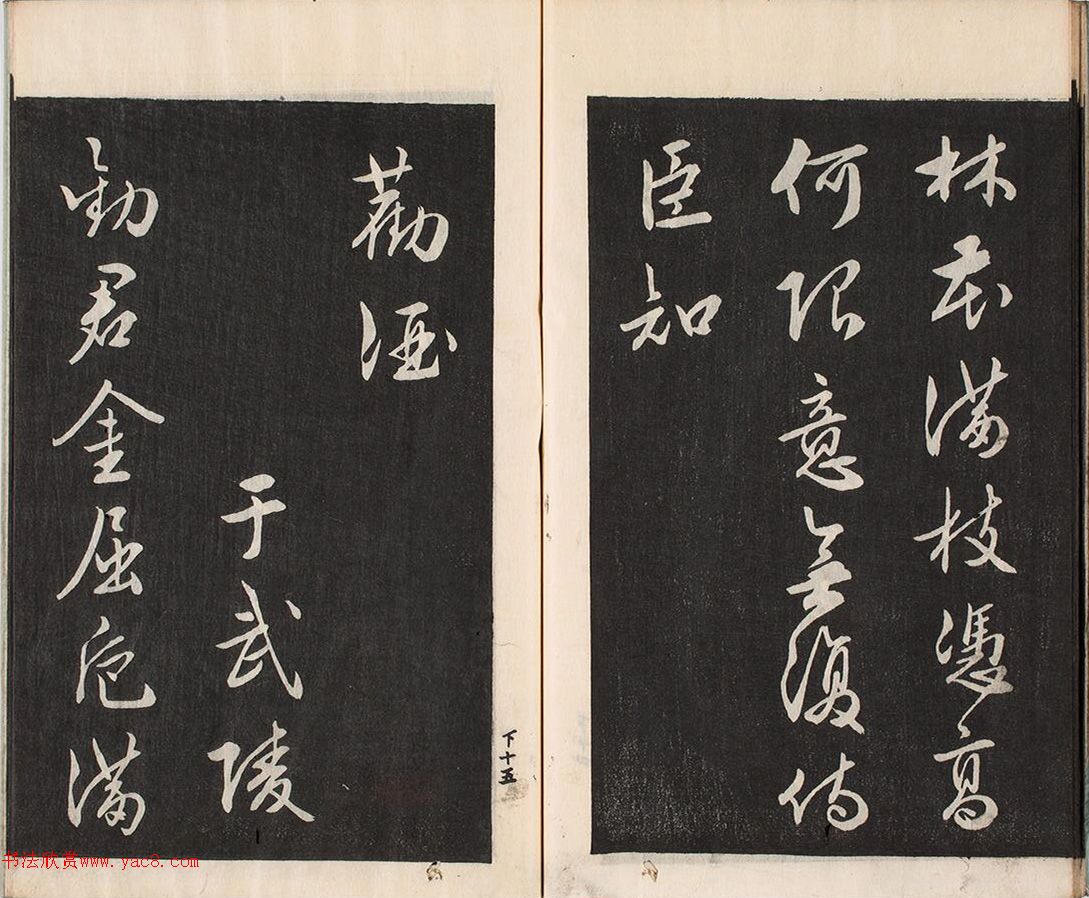 林花滿枝憑高
何限意無復侍
臣知
勸酒
于武陵
勸君金屈卮滿
下十五
书法欣赏www.yac8.com